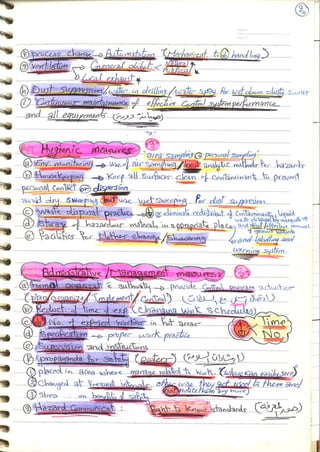 (f) process change → Automatation (Mechanizat. to handling)
(g) Ventilation → General dilut. < Natural
Manual
Local exhaust
(h) Dust suppression / water in drilling / water spray for wet down dusty
(i) Continuous maintenance of effective control system performance
and all equipments
Hygienic measures
(a) Env. monitoring → use of air sampling / analytic methods the hazards
area sampling personal sampling
(b) HouseKeeping → Keep all surfaces clean of contaminants to prevent
personal contact or dispersion
avoid dry sweaping but use wet sweeping for dust supression
(c) waste disposal practice → eliminate of contaminants, liquid
(d) storage of hazardous materials in appropriate places and
(e) Facilities for clothes change / showering
and labelling and
warning system
Administrative / Management measures
(a) formal & authority → provide Control program activities
(plan / organize / Implement / Control)
(b) Reduct. of time of exp. (changing work schedules)
(c) No. of exposed workers in hot areas
Time
No
(d) Specification → proper work practice
(e) Supervision and instructions
(f) propaganda for safety (posters)
(1) placed in area where message related to work. (where can easily seen)
(2) changed at frequent intervals otherwise they get used to them and
(not notice them any more)
(3) on benefits of safety
(g) Hazard Communicat. : Right to Know standards